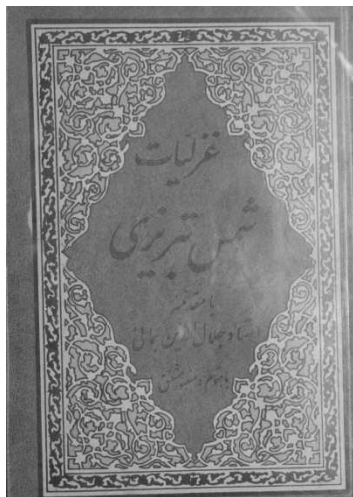 غزلیات
شمس تبریزی
با مقدمه
استاد جلال الدین همائی